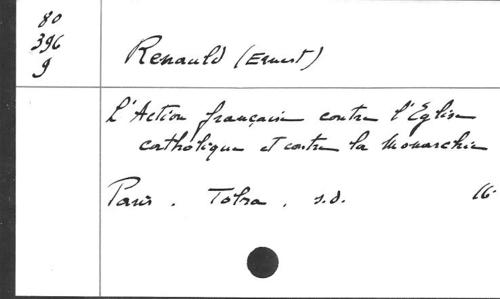 80
396
9
Renauld (Ernest)
L'Action française contre l'Eglise
catholique et contre la Monarchie
Paris. Tolra. s.d. 16